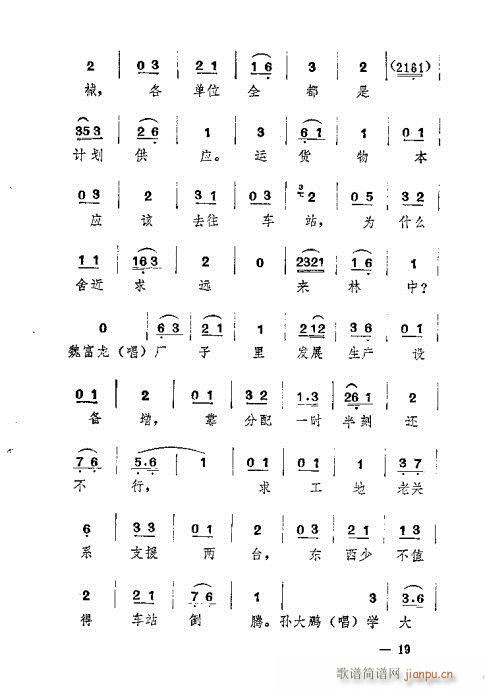 2 | 0 3 | 2 1 | 1 6 | 3 | 2 | (2161)
械, 各 单位 全 都 是
353 | 2 6 | 1 | 3 | 6 1 | 1 | 0 1
计划 供 应。 运 货 物 本
0 3 | 2 | 3 1 | 0 3 | 3 7 2 | 0 5 | 3 2
应 该 去往 车 站, 为 什么
1 1 | 163 | 2 | 0 | 2321 | 1 6 | 1
舍近 求 远 来 林 中?
0 | 6 3 | 2 1 | 1 | 212 | 3 6 | 0 1
魏富龙(唱)厂 子 里 发展 生产 设
0 1 | 2 | 0 1 | 3 2 | 1.3 | 26 1 | 2
备 增, 靠 分配 一时 半刻 还
7 6 | 5.6 | 1 | 0 1 | 0 1 | 1 | 3 7
不 行, 求 工 地 老关
6 | 3 3 | 0 1 | 2 | 0 3 | 2 1 | 1 3
系 支援 两 台, 东 西少 不值
2 | 2 1 | 7 6 | 1 | 3 | 3.6
得 车站 倒 腾。孙大鹏(唱)学 大
— 19
歌谱简谱网
jianpu.cn